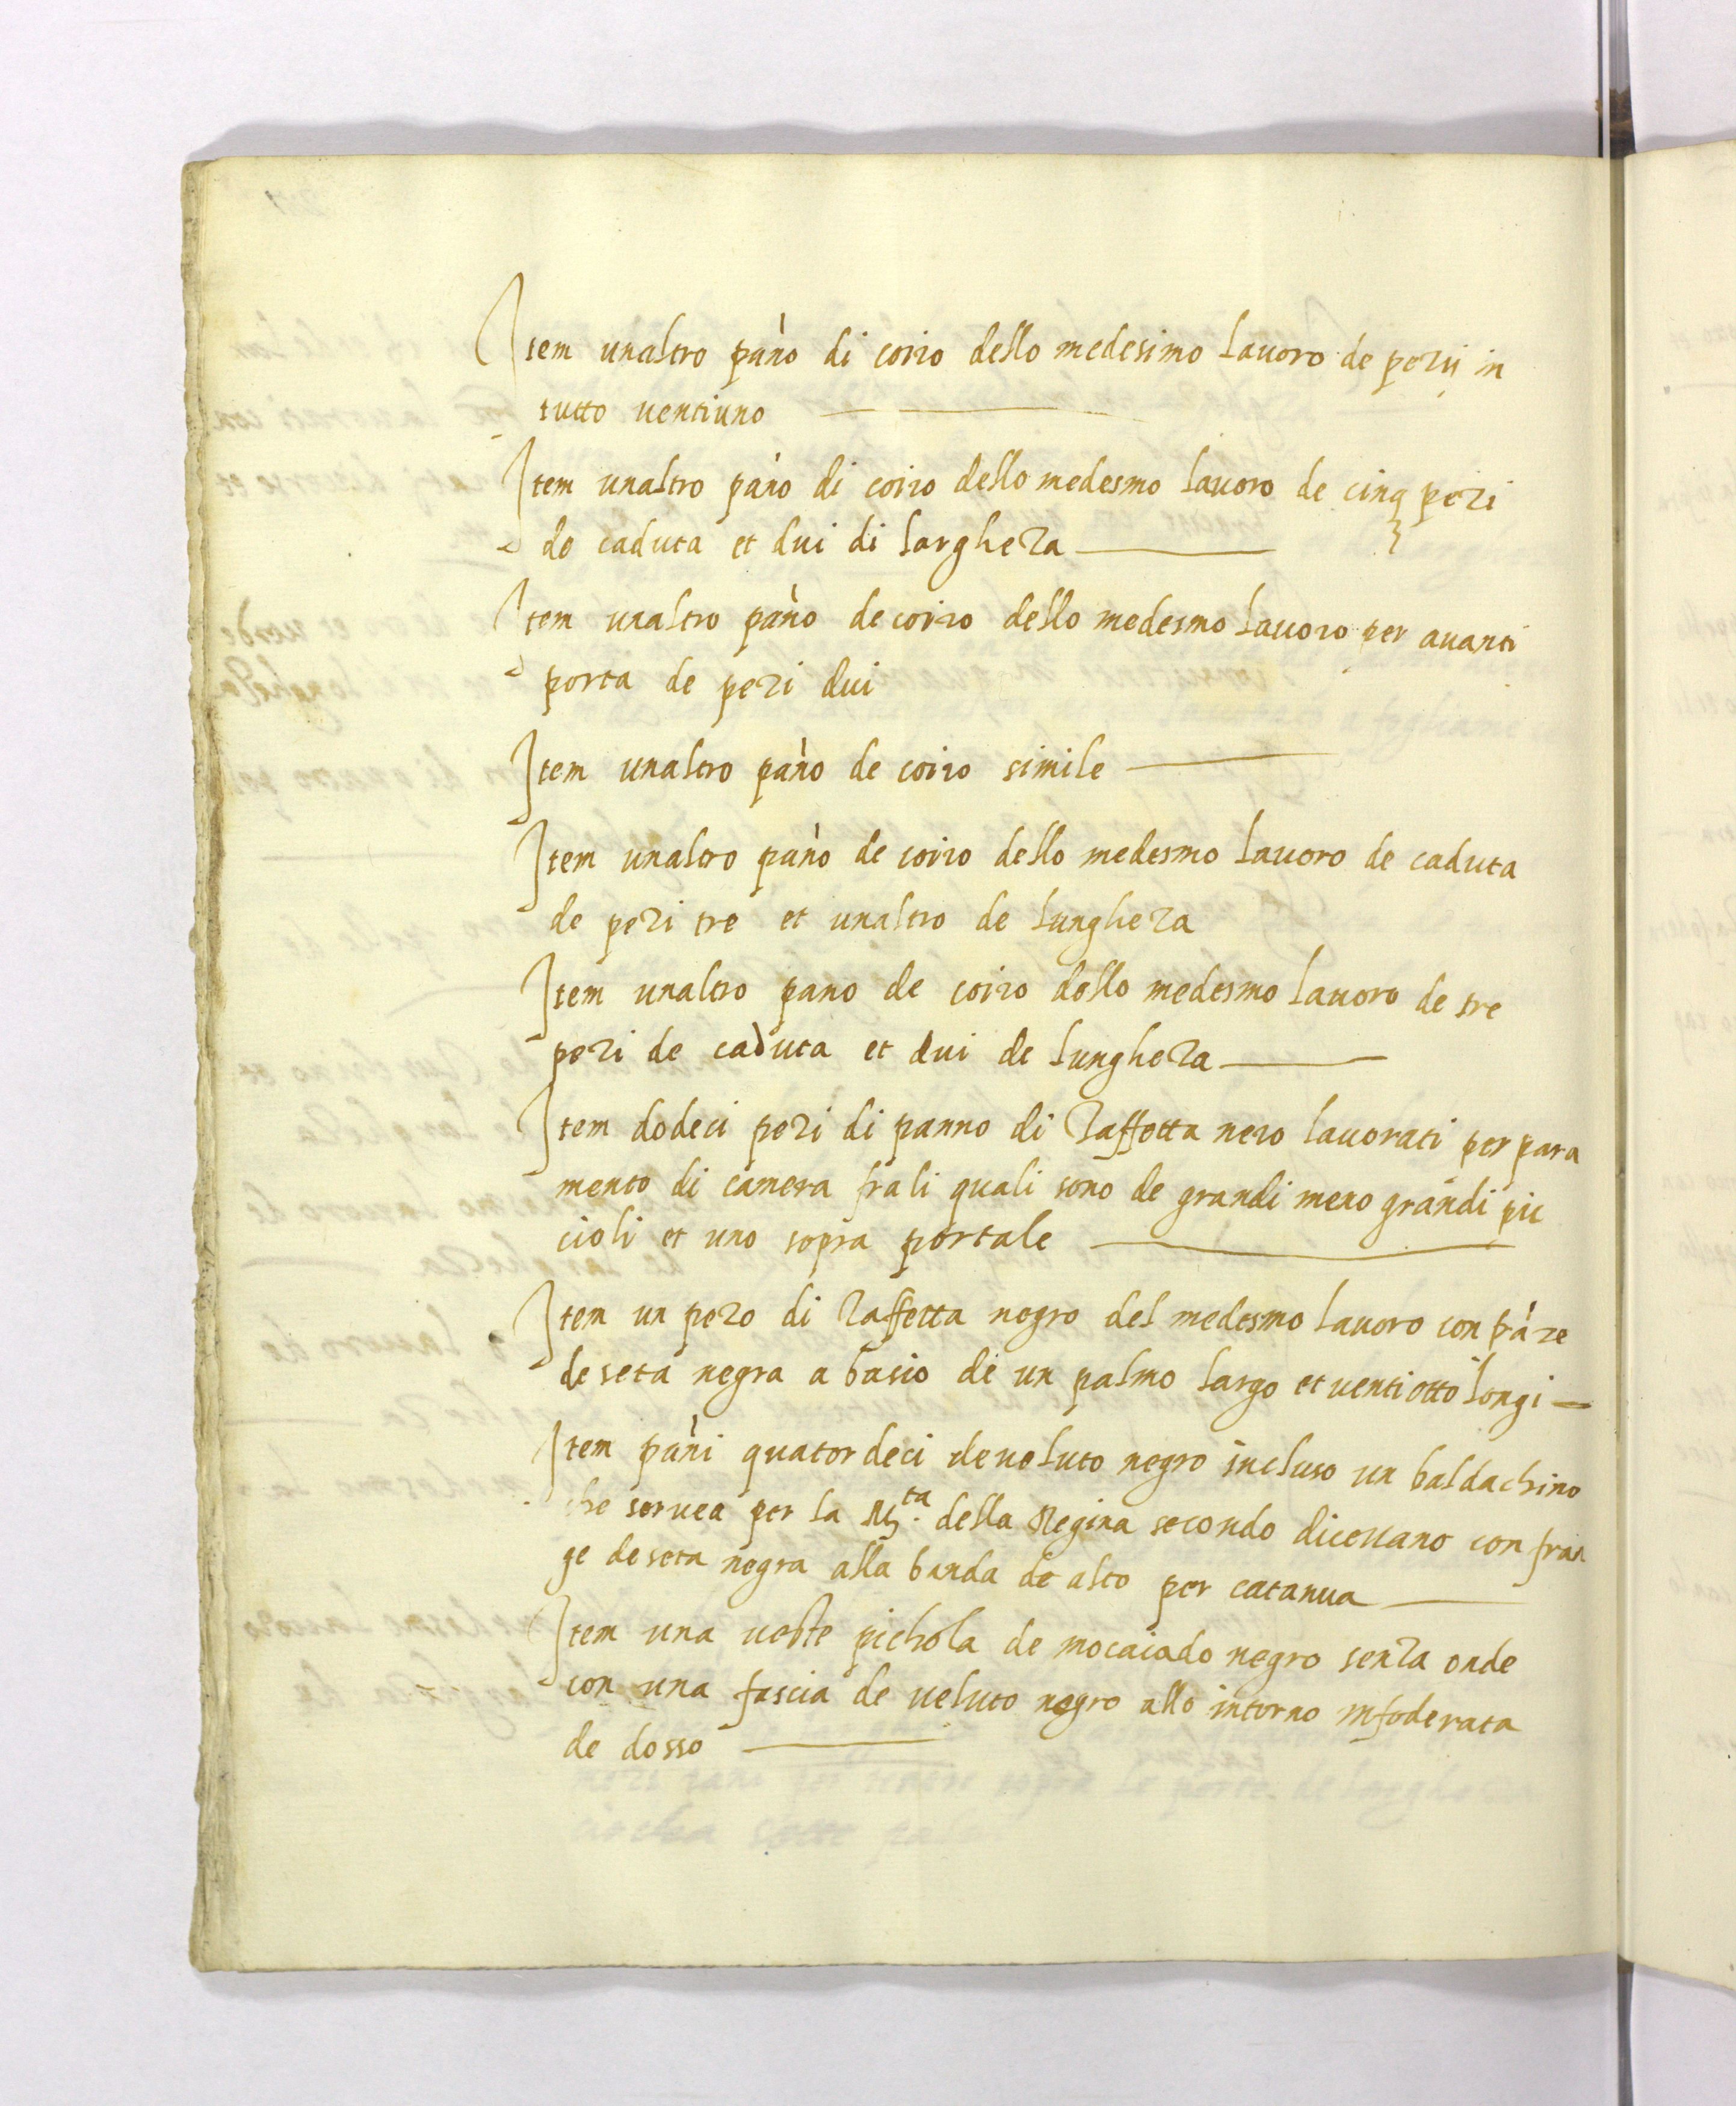 Item unaltro pano di coiro dello medesimo lavoro de pezij in
tutto ventiuno
Item unaltro pano di coiro dello medesmo lavoro de cinq pezi
de caduta et dui di largheza
Item unaltro pano de coiro dello medesmo lavoro per avanti
porta de pezi dui
Item unaltro pano de coiro simile
Item unaltro pano de coiro dello medesmo lavoro de caduta
de pezi tre et unaltro de lungheza
Item unaltro pano de coiro dello medesmo lavoro de tre
pezi de caduta et dui de lungheza
Item dodeci pezi di panno di zaffetta nero lavorati per para
mento di camera fra li quali sono de grandi meno grandi pic
cioli et uno sopra portale
Item un pezo di zaffetta negro del medesmo lavoro con
de seta negra a basio de un palmo largo et ventiotto longi
Item pani quatordeci de veluto negro incluso un baldachino
che servea per la M.ta della Regina secondo dicevano con fran
ge de seta negra alla banda de alto per
Item una veste pichola de mocaiado negro senza onde
con una fascia de veluto negro allo intorno infoderata
de dosso